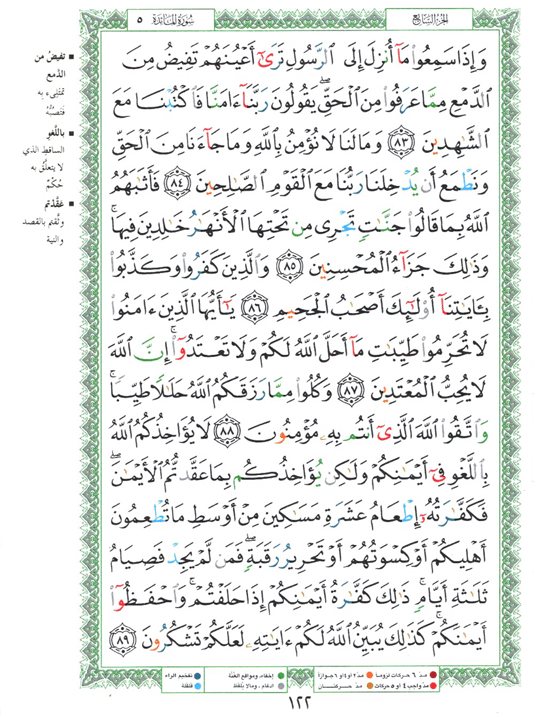 الجزء السابع
سورة المائدة ٥
وَإِذَا سَمِعُوا۟ مَآ أُنزِلَ إِلَى ٱلرَّسُولِ تَرَىٰٓ أَعْيُنَهُمْ تَفِيضُ مِنَ
ٱلدَّمْعِ مِمَّا عَرَفُوا۟ مِنَ ٱلْحَقِّ ۖ يَقُولُونَ رَبَّنَآ ءَامَنَّا فَٱكْتُبْنَا مَعَ
ٱلشَّٰهِدِينَ ٨٣ وَمَا لَنَا لَا نُؤْمِنُ بِٱللَّهِ وَمَا جَآءَنَا مِنَ ٱلْحَقِّ
وَنَطْمَعُ أَن يُدْخِلَنَا رَبُّنَا مَعَ ٱلْقَوْمِ ٱلصَّٰلِحِينَ ٨٤ فَأَثَٰبَهُمُ
ٱللَّهُ بِمَا قَالُوا۟ جَنَّٰتٍ تَجْرِى مِن تَحْتِهَا ٱلْأَنْهَٰرُ خَٰلِدِينَ فِيهَا ۚ
وَذَٰلِكَ جَزَآءُ ٱلْمُحْسِنِينَ ٨٥ وَٱلَّذِينَ كَفَرُوا۟ وَكَذَّبُوا۟
بِـَٔايَٰتِنَآ أُو۟لَٰٓئِكَ أَصْحَٰبُ ٱلْجَحِيمِ ٨٦ يَٰٓأَيُّهَا ٱلَّذِينَ ءَامَنُوا۟
لَا تُحَرِّمُوا۟ طَيِّبَٰتِ مَآ أَحَلَّ ٱللَّهُ لَكُمْ وَلَا تَعْتَدُوٓا۟ ۚ إِنَّ ٱللَّهَ
لَا يُحِبُّ ٱلْمُعْتَدِينَ ٨٧ وَكُلُوا۟ مِمَّا رَزَقَكُمُ ٱللَّهُ حَلَٰلًا طَيِّبًا ۚ
وَٱتَّقُوا۟ ٱللَّهَ ٱلَّذِىٓ أَنتُم بِهِۦ مُؤْمِنُونَ ٨٨ لَا يُؤَاخِذُكُمُ ٱللَّهُ
بِٱللَّغْوِ فِىٓ أَيْمَٰنِكُمْ وَلَٰكِن يُؤَاخِذُكُم بِمَا عَقَّدتُّمُ ٱلْأَيْمَٰنَ ۖ
فَكَفَّٰرَتُهُۥٓ إِطْعَامُ عَشَرَةِ مَسَٰكِينَ مِنْ أَوْسَطِ مَا تُطْعِمُونَ
أَهْلِيكُمْ أَوْ كِسْوَتُهُمْ أَوْ تَحْرِيرُ رَقَبَةٍ ۖ فَمَن لَّمْ يَجِدْ فَصِيَامُ
ثَلَٰثَةِ أَيَّامٍ ۚ ذَٰلِكَ كَفَّٰرَةُ أَيْمَٰنِكُمْ إِذَا حَلَفْتُمْ ۚ وَٱحْفَظُوٓا۟
أَيْمَٰنَكُمْ ۚ كَذَٰلِكَ يُبَيِّنُ ٱللَّهُ لَكُمْ ءَايَٰتِهِۦ لَعَلَّكُمْ تَشْكُرُونَ ٨٩
■ تفيض من
الدمع
تمتلىء به
فتصبّه
■ باللغو
الساقط الذي
لا يتعلّق به
حكم
■ عقّدتم
وثّقتم بالقصد
والنية
مد ٦ حركات لزوماً
مد ٢ او ٤ او ٦ جوازاً
مد واجب ٤ او ٥ حركات
مد حركتان
إخفاء، ومواقع الغنّة
ادغام، وما لا يُلفظ
تفخيم الراء
قلقلة
١٢٢